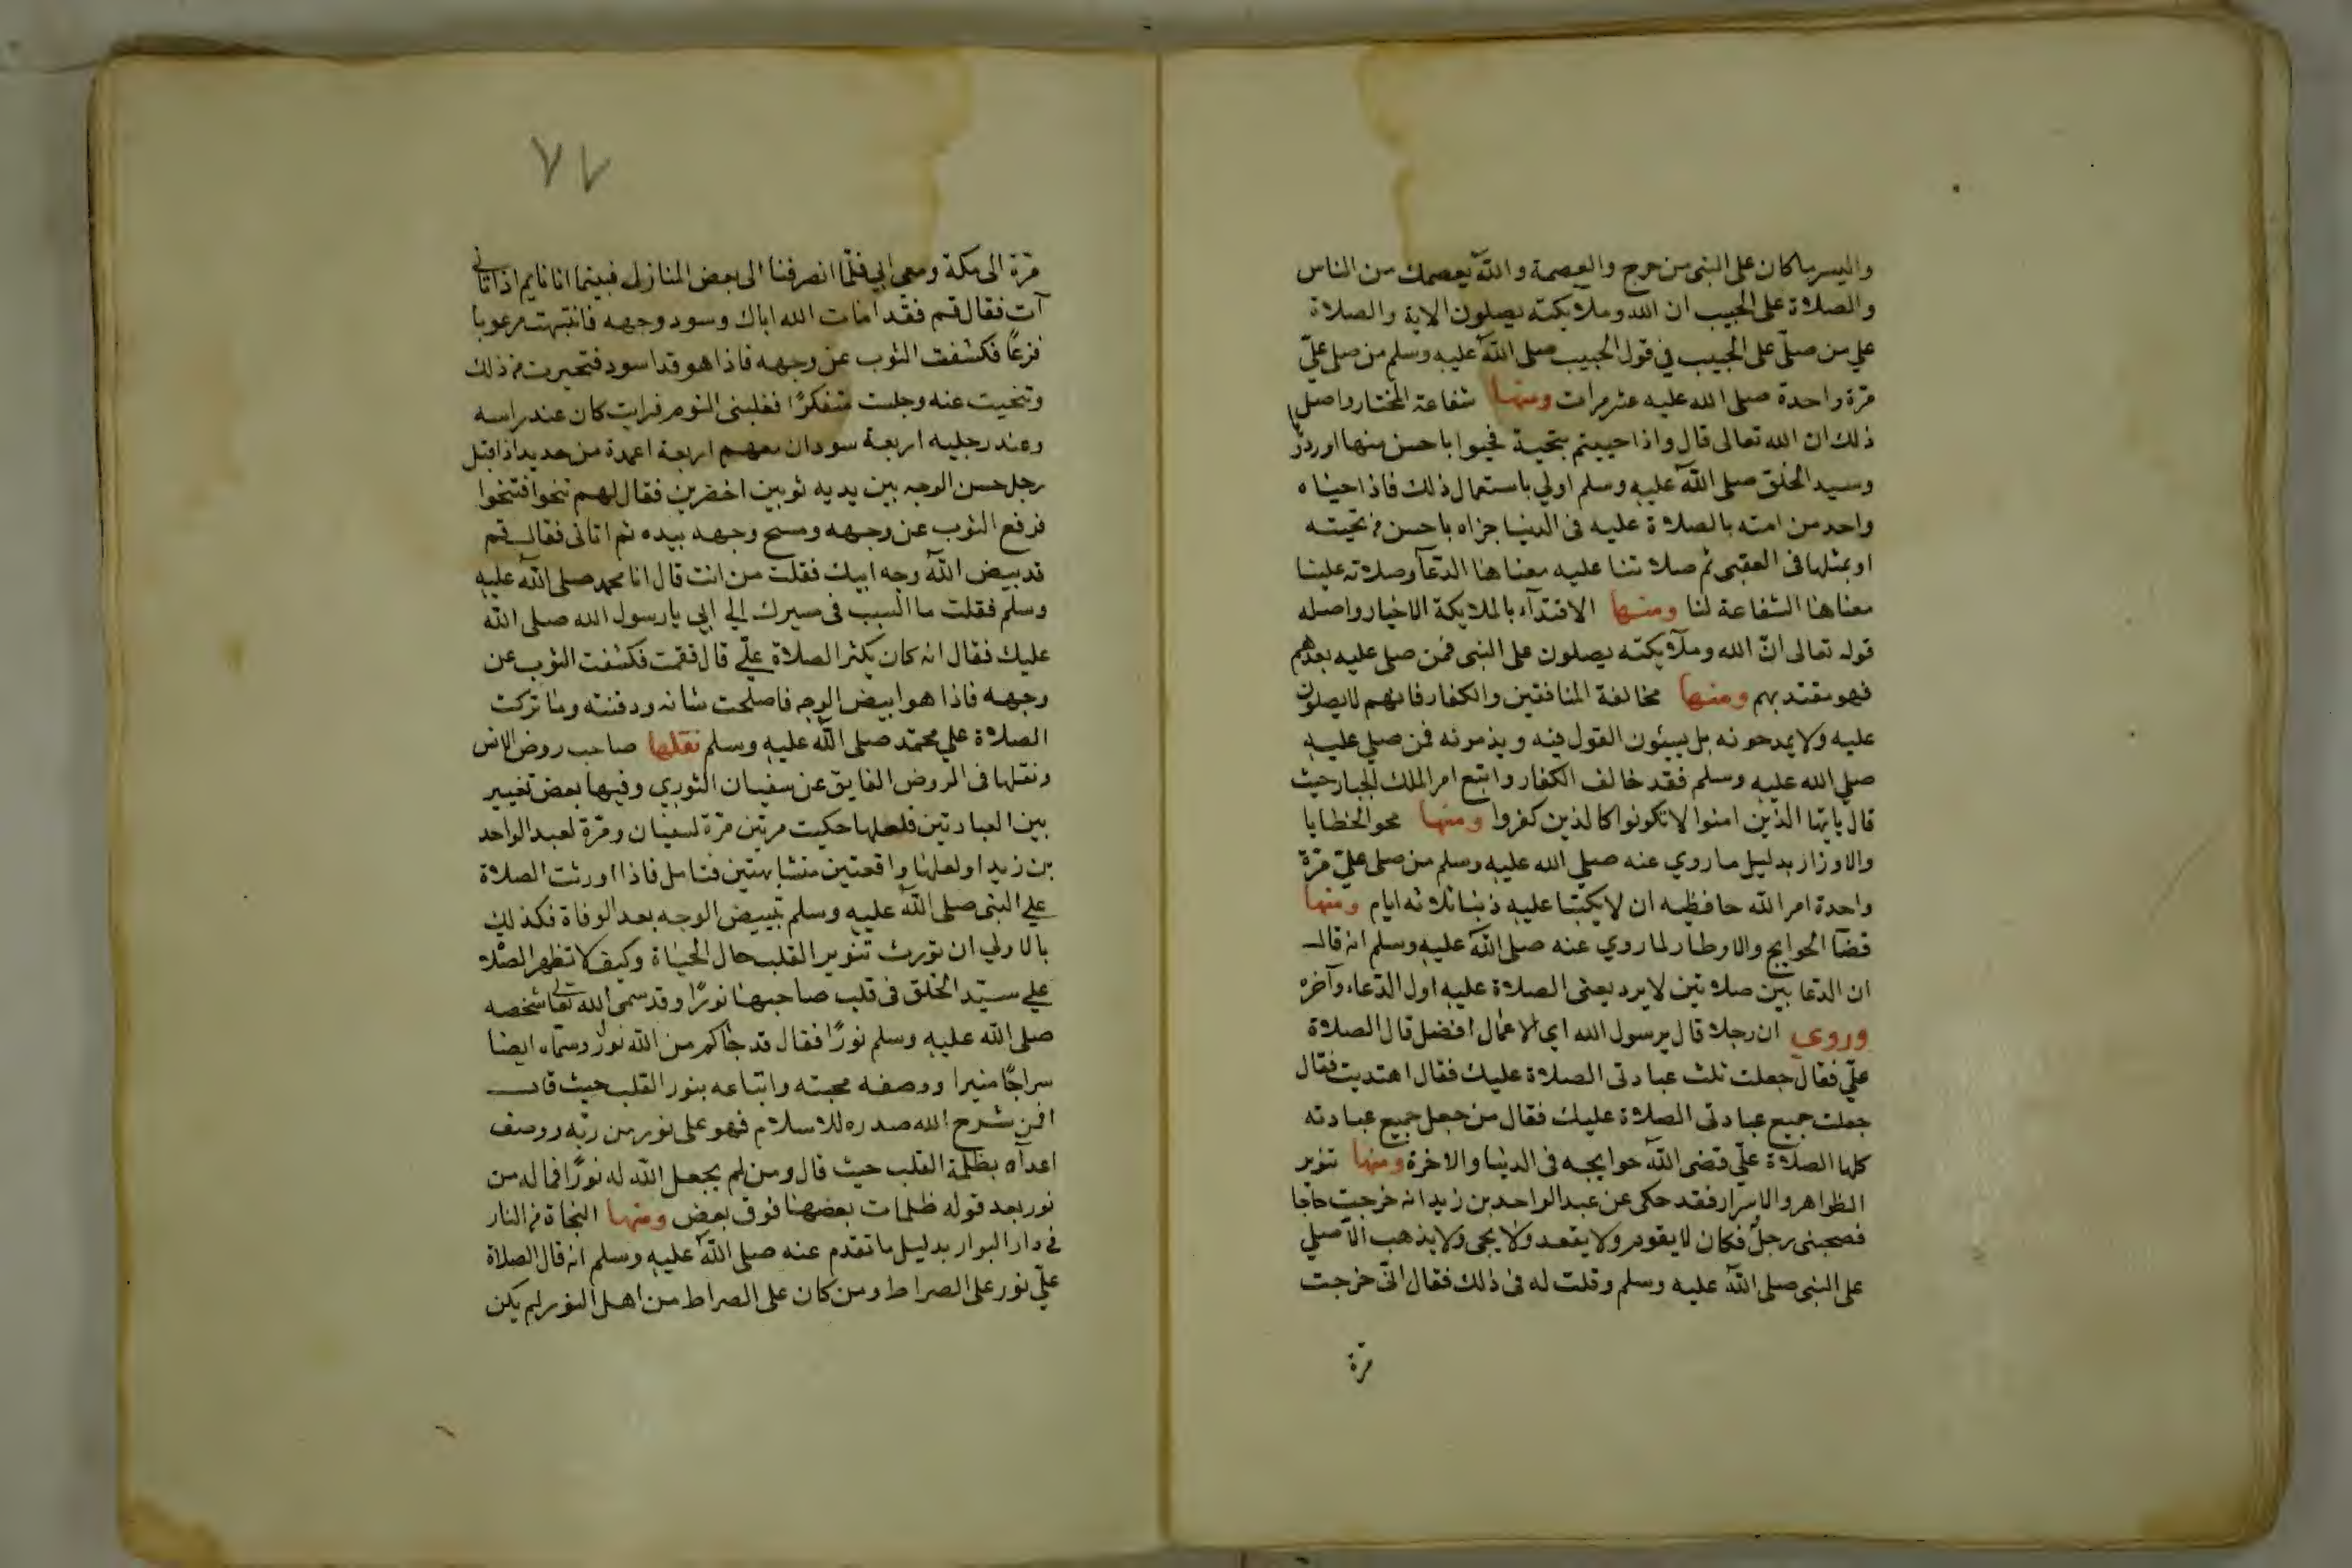 واليسر ما كان على النبى من حرج والعصمة والله يعصمك من الناس
والصلاة على الحبيب ان الله وملايكته يصلون الاية والصلاة
علي من صلّى على الحبيب في قول الحبيب صلى الله عليه وسلم من صلى عليّ
مرّة واحدة صلى الله عليه عشر مرات ومنها شفاعة المختار واصل
ذلك ان الله تعالى قال واذا حييتم بتحية فحيوا باحسن منها او ردّوا
وسيد الخلق صلى الله عليه وسلم اولي باستعمال ذلك فاذا حيّاه
واحد من امته بالصلاة عليه فى الدنيا جزاه باحسن من تحيته
او بمثلها فى العقبى ثم صلاتنا عليه معناها الدّعآ وصلاته علينا
معناها الشفاعة لنا ومنها الاقتدآء بالملايكة الاخيار واصله
قوله تعالى انّ الله وملآيكته يصلون على النبى فمن صلى عليه بعدهم
فهو مقتد بهم ومنها مخالفة المنافقين والكفار فانهم لا يصلون
عليه ولا يمدحونه بل يسيئون القول فيه ويذمونه فمن صلي عليه
صلي الله عليه وسلم فقد خالف الكفار واتبع امر الملك الجبار حيث
قال يايّها الذين امنوا لا تكونوا كالذين كفروا ومنها محو الخطايا
والاوزار بدليل ما روي عنه صلي الله عليه وسلم من صلى عليّ مرّة
واحدة امر الله حافظيه ان لا يكتبا عليه ذنبا ثلاثه ايام ومنها
قضآ الحوايج والاوطار لما روي عنه صلى الله عليه وسلم انه قال
ان الدّعا بين صلاتين لا يرد يعنى الصلاة عليه اول الدّعاء وآخره
وروي ان رجلا قال يرسول الله اي الاعمال افضل قال الصلاة
عليّ فقال جعلت ثلث عبادتى الصلاة عليك فقال اهتديت فقال
جعلت جميع عبادتى الصلاة عليك فقال من جعل جميع عبادته
كلها الصلاة عليّ قضى الله حوايجه فى الدنيا والاخرة ومنها تنوير
الظواهر والاسرار فقد حكى عن عبد الواحد بن زيد انه خرجت حاجا
فصحبنى رجلٌ فكان لا يقوم ولا يقعد ولا يجى ولا يذهب الّا صلي
على النبى صلى الله عليه وسلم وقلت له فى ذلك فقال انّى خرجت
مرّة
٧٧
مرّة الى مكة ومعى ابي فلمّا انصرفنا الى بعض المنازل فبينما انا نايم اذ اتانى
آت فقال قم فقد امات الله اباك وسود وجهه فانتبهت مرعوبا
فزعًا فكشفت الثوب عن وجهه فاذا هو قد اسود فتحيرت من ذلك
وتنحيت عنه وجلست متفكرًا فغلبنى النوم فرايت كان عند راسه
وعند رجليه اربعة سودان معهم اربعة اعمدة من حديد اذا قبل
رجل حسن الوجه بين يديه ثوبين اخضرين فقال لهم تنحوا فتنحوا
فرفع الثوب عن وجهه ومسح وجهه بيده ثم اتانى فقال قم
قد بيض الله وجه ابيك فقلت من انت قال انا محمد صلى الله عليه
وسلم فقلت ما السبب فى مسيرك الي ابي يا رسول الله صلى الله
عليك فقال انه كان يكثر الصلاة عليّ قال فقمت فكشفت الثوب عن
وجهه فاذا هو ابيض الوجه فاصلحت شانه ودفنته وما تركت
الصلاة علي محمّد صلى الله عليه وسلم نقلها صاحب روض الانس
ونقلها فى الروض الفايق عن سفيان الثوري وفيها بعض تغيير
بين العبارتين فلعلها حكيت مرتين مرّة لسفيان ومرّة لعبد الواحد
بن زيد او لعلها واقعتين متشابهتين فتامل فاذا اورثت الصلاة
علي النبى صلى الله عليه وسلم تبييض الوجه بعد الوفاة فكذلك
بالاولي ان تورث تنوير القلب حال الحياة وكيف لا تظهر الصّلاة
علي سيّد الخلق فى قلب صاحبها نورًا وقد سمى الله تعالى شخصه
صلى الله عليه وسلم نورًا فقال قد جاكم من الله نورٌ وسمّاه ايضا
سراجًا منيرا ووصف محبته واتباعه بنور القلب حيث قال
افمن شرح الله صدره للاسلام فهو على نور من ربّه ووصف
اعدآه بظلمة القلب حيث قال ومن لم يجعل الله له نورًا فما له من
نور بعد قوله ظلمات بعضها فوق بعض ومنها النجاة من النار
فى دار البوار بدليل ما تقدم عنه صلى الله عليه وسلم انه قال الصلاة
عليّ نور على الصراط ومن كان على الصراط من اهل النور لم يكن